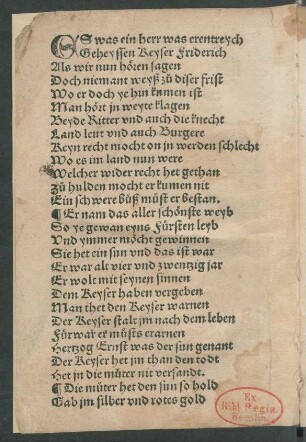 ES was ein herr was erentreych
Geheyssen Keyser Friderich
Als wir nun hören sagen
Doch niemant weyß zu diser frist
Wo er doch ye hin kumen ist
Man hört in weyte klagen
Beyde Ritter vnd auch die knecht
Land leut vnd auch Burgere
Keyn recht mocht on in werden schlecht
Wo es im land nun were
Welcher wider recht het gethan
Zů hulden mocht er kumen nit
Ein schwere bůß můst er bestan.
¶ Er nam das aller schönste weyb
So ye gewan eyns Fürsten leyb
Vnd ymmer möcht gewinnen
Sie het ein sun vnd das ist war
Er war alt vier vnd zwentzig jar
Er wolt mit seynen sinnen
Dem Keyser haben vergeben
Man thet den Keyser warnen
Der Keyser stalt jm nach dem leben
Für war er můsts erarnen
Hertzog Ernst was der sun genant
Der Keyser het jm than den todt
Het jn die můter nit versandt.
¶ Die můter het den sun so hold
Gab jm silber vnd rotes gold
Ex
Bibl. Regia
Berolin.